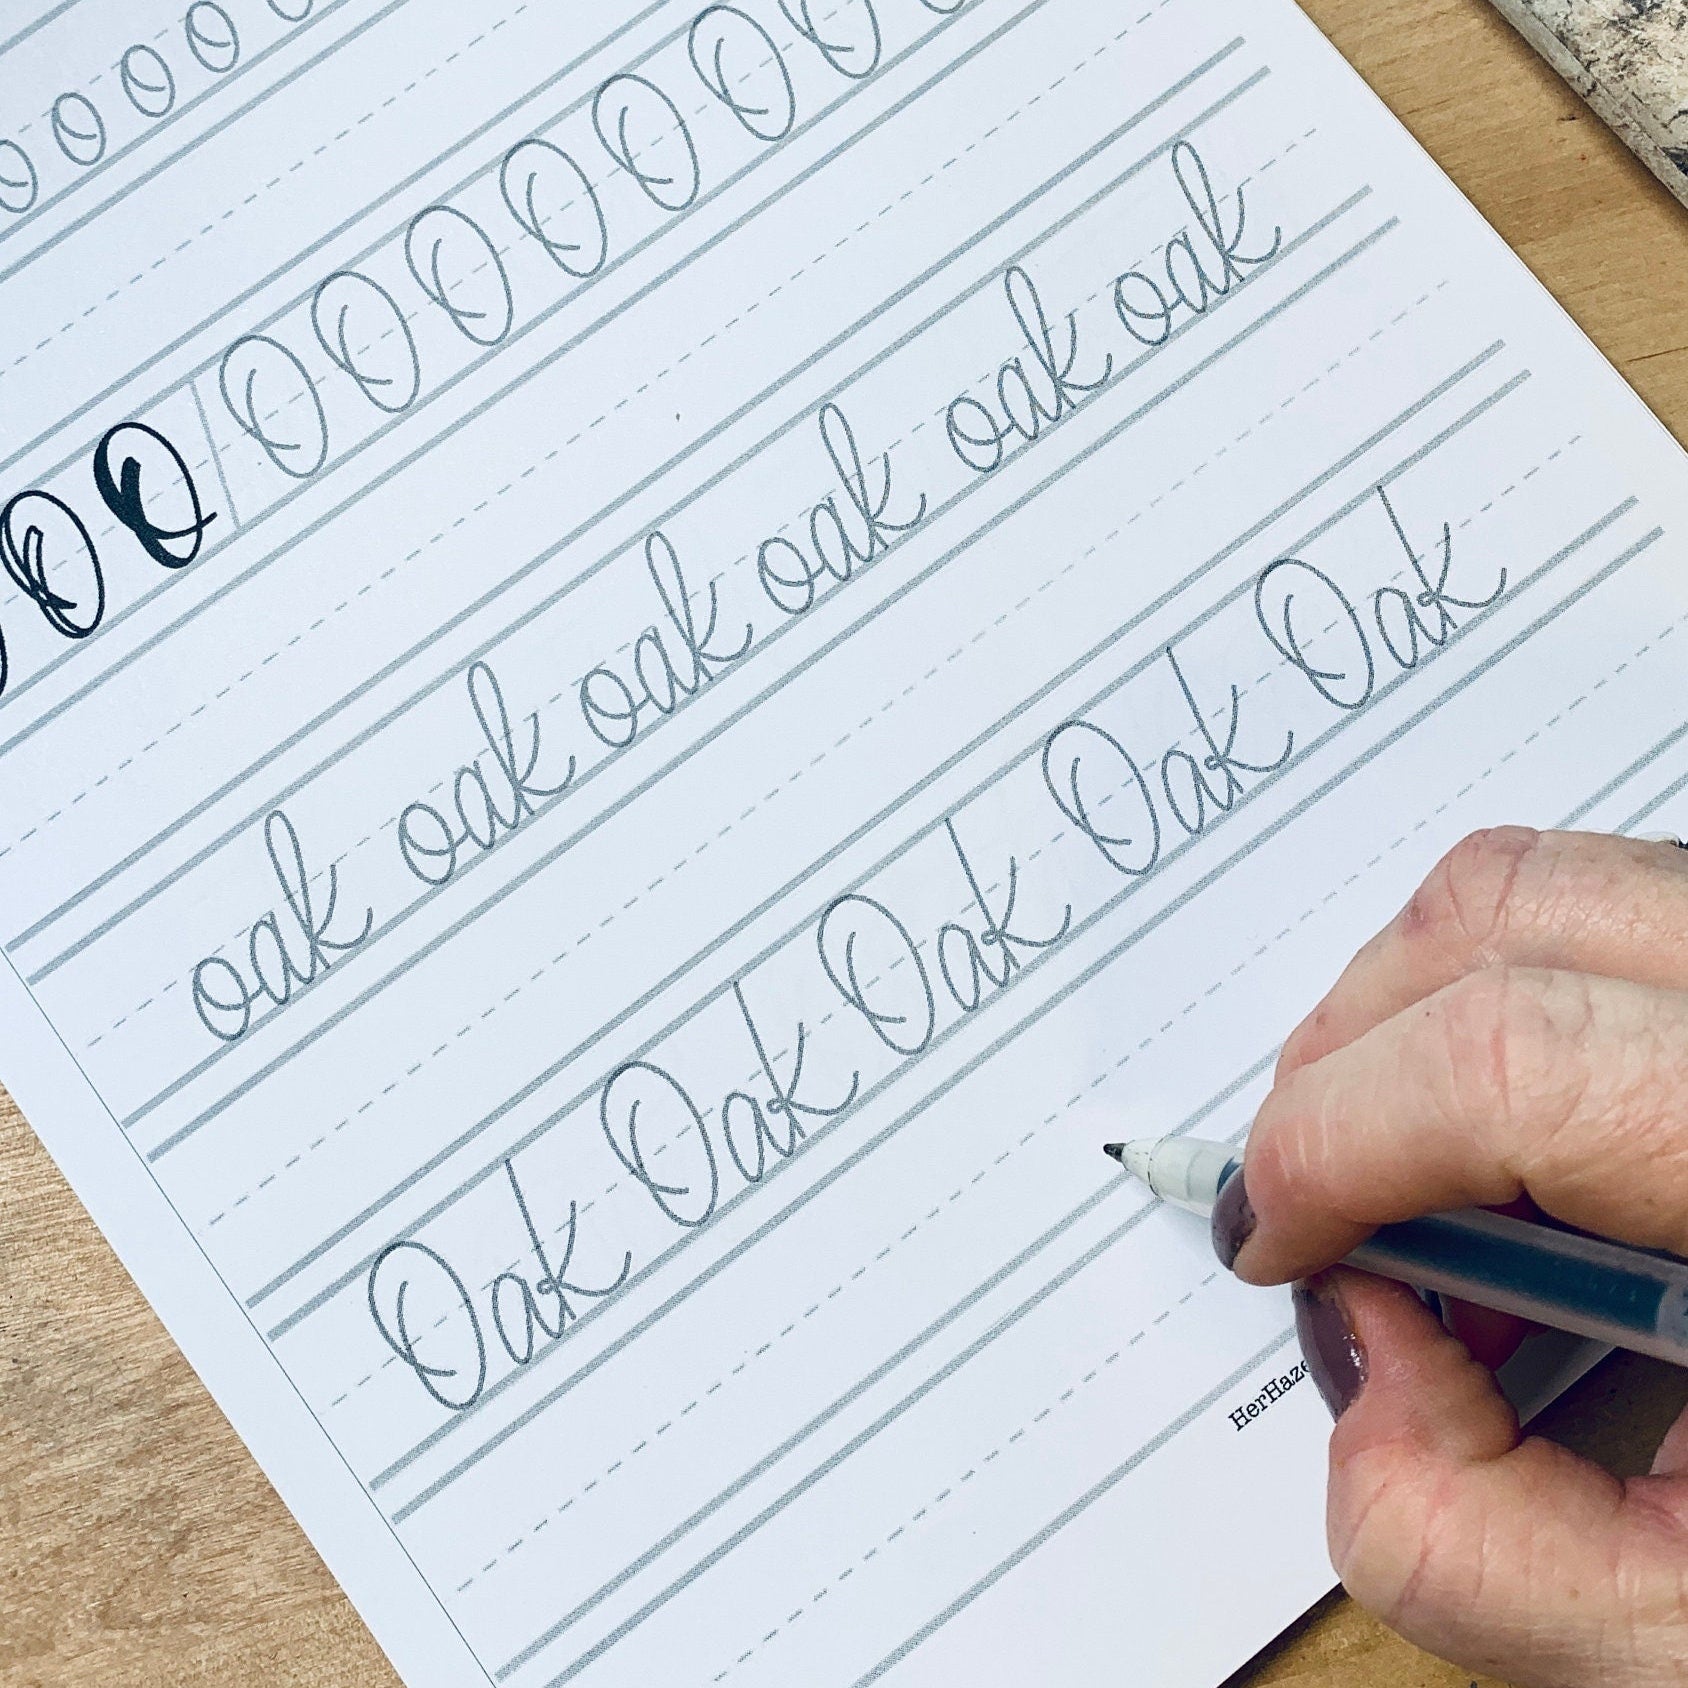 o o o o o
O O O O O O O O O O
oak oak oak oak oak oak
Oak Oak Oak Oak Oak
HerHaze